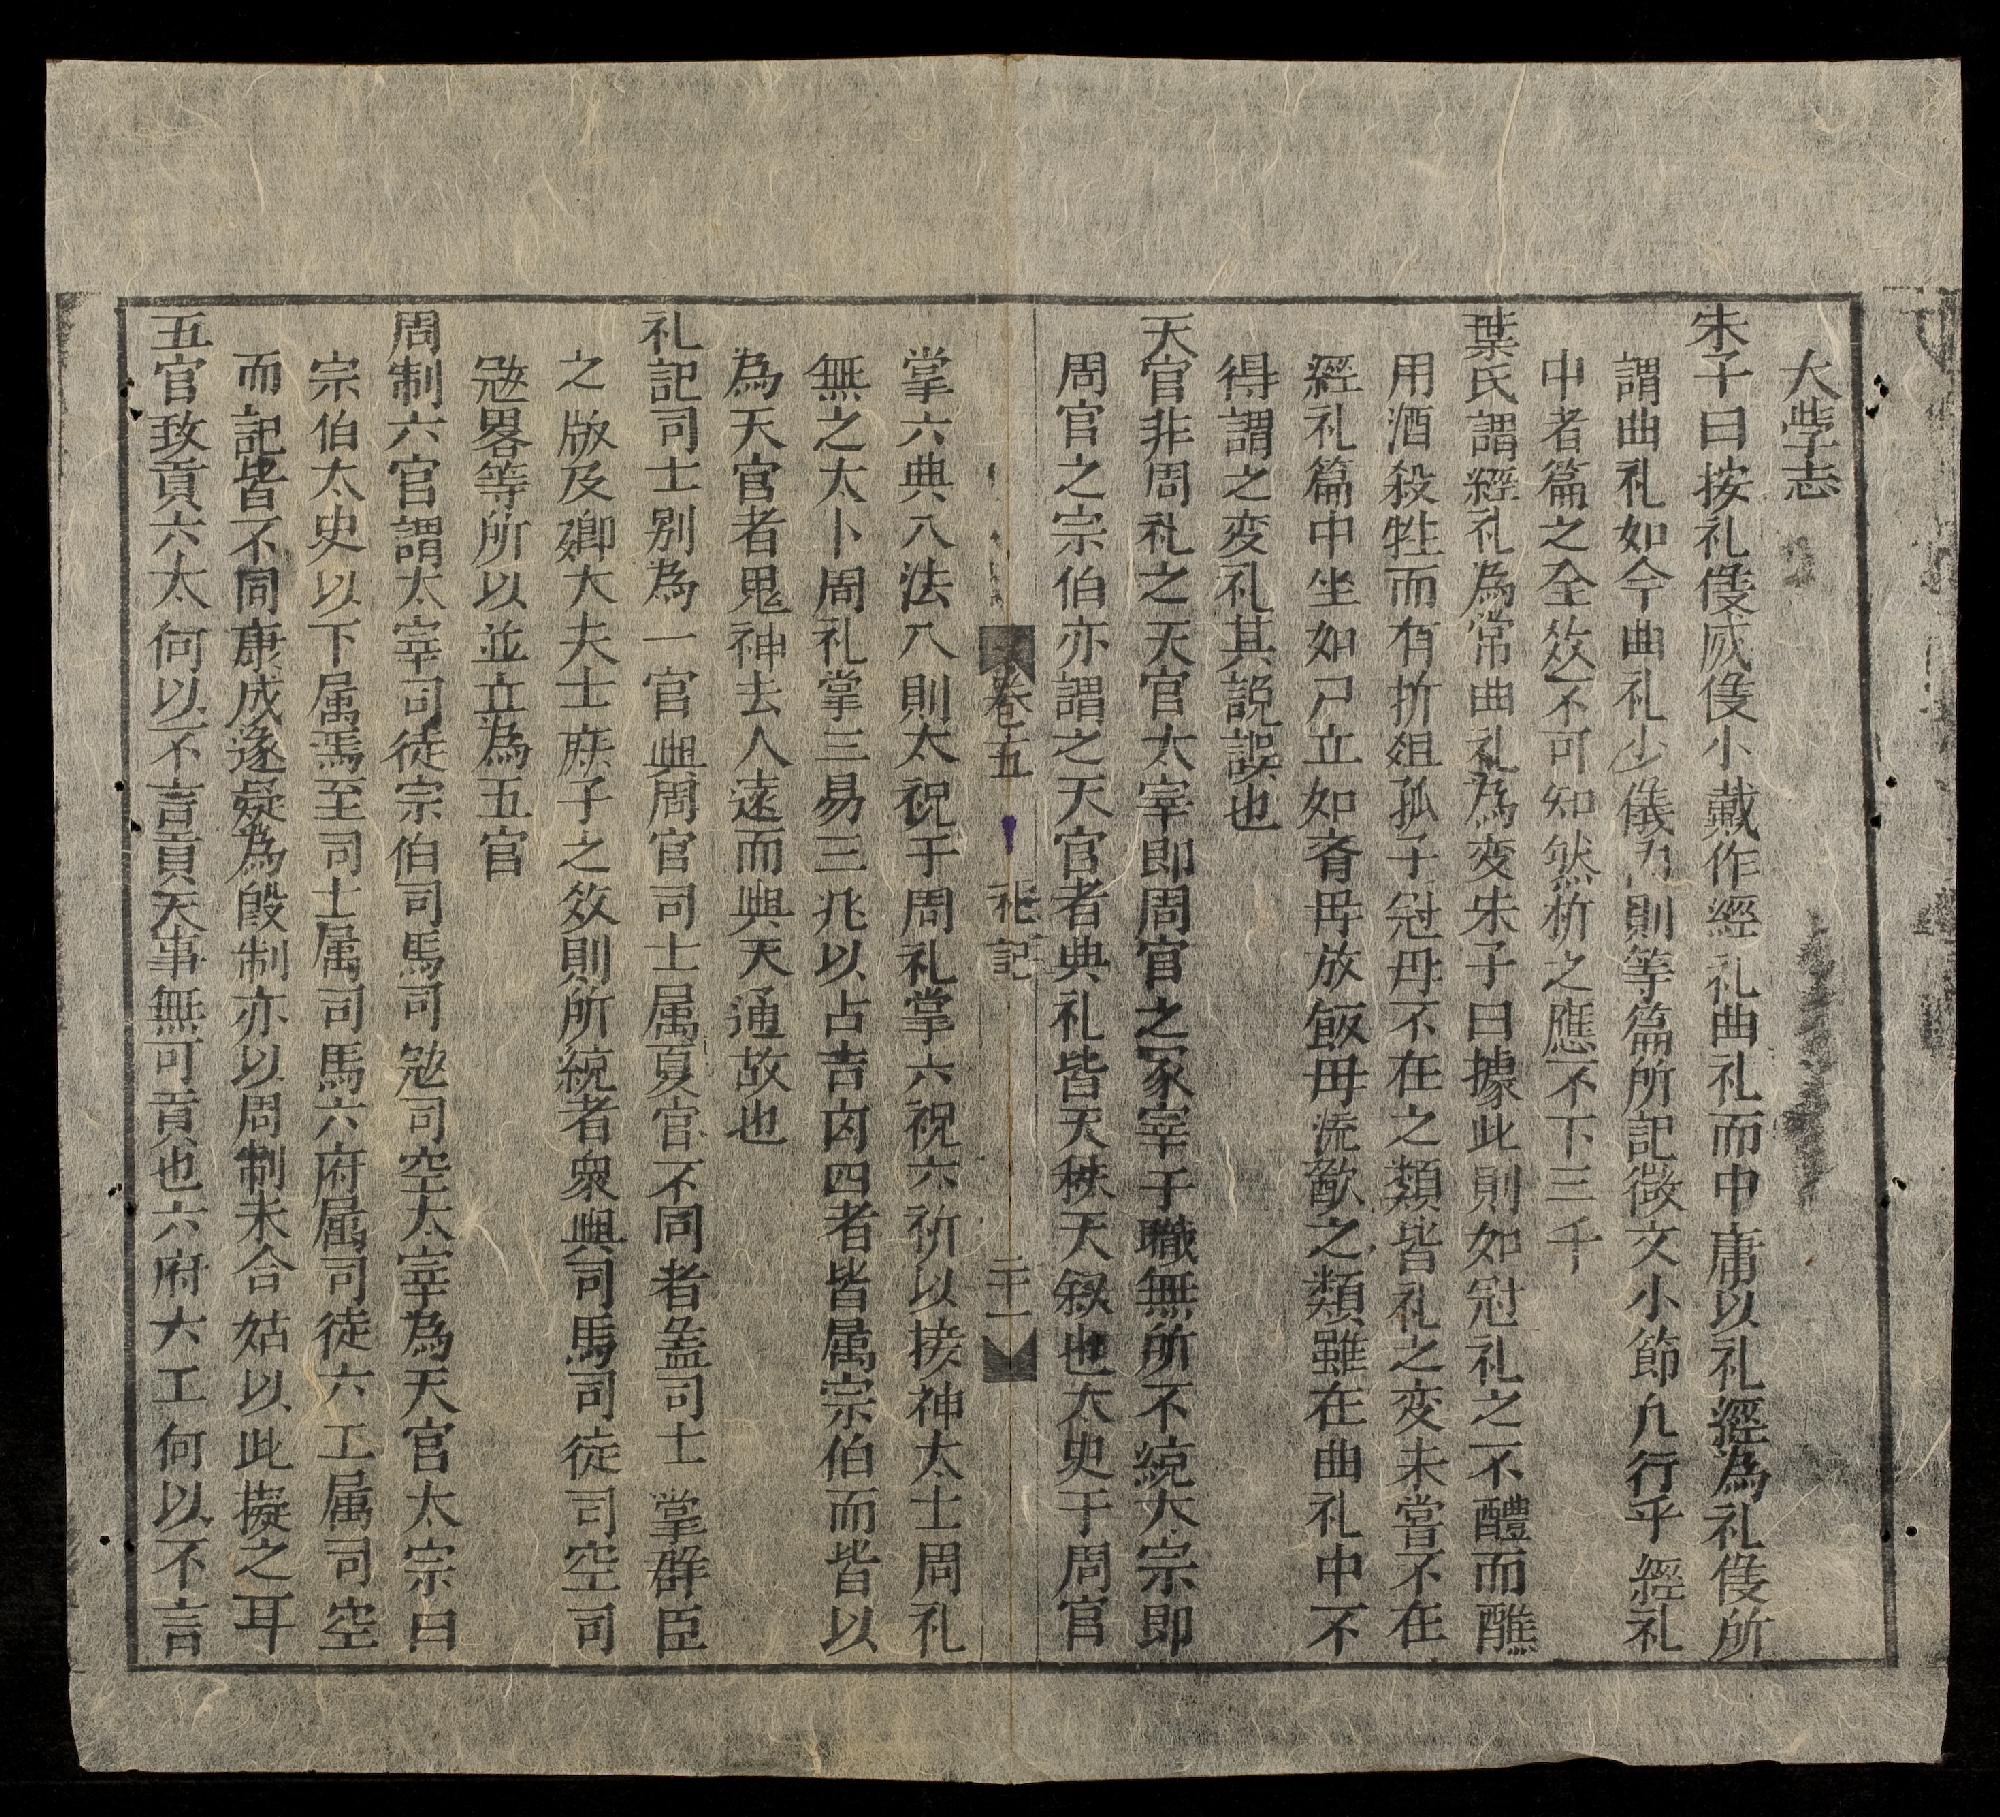 大斈志
朱子曰按礼儀威儀小戴作經礼曲礼而中庸以礼經為礼儀所
謂曲礼如今曲礼少儀內則等篇所記微文小節凢行乎經礼
中者篇之全数不可知然析之應不下三千
葉氏謂經礼為常曲礼為変朱子曰據此則如冠礼之不醴而醮
用酒殺牲而有折俎孤子冠母不在之類皆礼之変未嘗不在
經礼篇中坐如尸立如斉毋放飯毋流歠之類雖在曲礼中不
得謂之変礼其說誤也
天官非周礼之天官太宰即周官之冢宰于職無所不統大宗即
周官之宗伯亦謂之天官者典礼皆天秩天叙也太史于周官
卷五 礼記 二十一
掌六典八法八則太祝于周礼掌六祝六祈以接神太士周礼
無之太卜周礼掌三易三兆以占吉凶四者皆属宗伯而皆以
為天官者鬼神去人遠而與天通故也
礼記司士別為一官與周官司士属夏官不同者盖司士掌群臣
之版及卿大夫士庻子之数則所統者衆與司馬司徒司空司
冦畧等所以並立為五官
周制六官謂太宰司徒宗伯司馬司冦司空太宰為天官太宗曰
宗伯太史以下属焉至司士属司馬六府属司徒六工属司空
而記皆不同康成遂疑為殷制亦以周制未合姑以此擬之耳
五官致貢六太何以不言貢天事無可貢也六府六工何以不言